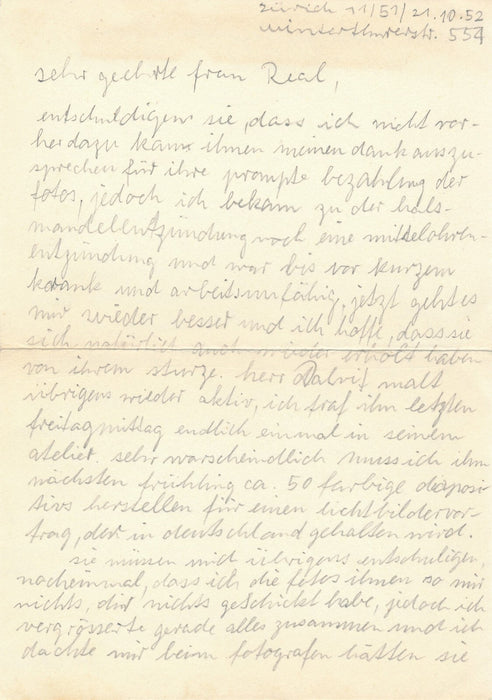 zürich 11/51/21.10.52
winterthurerstr. 554
sehr geehrte frau Real,
entschuldigen sie, dass ich nicht vor-
her dazu kam ihnen meinen dank auszu-
sprechen für ihre prompte bezahlung der
fotos, jedoch ich bekam zu der hals-
mandelentzündung noch eine mittelohren-
entzündung und war bis vor kurzem
krank und arbeitsunfähig. jetzt geht es
mir wieder besser und ich hoffe, dass sie
sich natürlich auch wieder erholt haben
von ihrem sturze. herr Dalvit malt
übrigens wieder aktiv, ich traf ihn letzten
freitagmittag endlich einmal in seinem
atelier. sehr warscheindlich muss ich ihm
nächsten frühling ca. 50 farbige diaposi-
tivs herstellen für einen lichtbildervor-
trag, der in deutschland gehalten wird.
sie müssen mich übrigens entschuldigen,
nocheinmal, dass ich die fotos ihnen so mir
nichts, dir nichts geschickt habe, jedoch ich
vergrösserte gerade alles zusammen und ich
dachte mir beim fotografen hätten sie